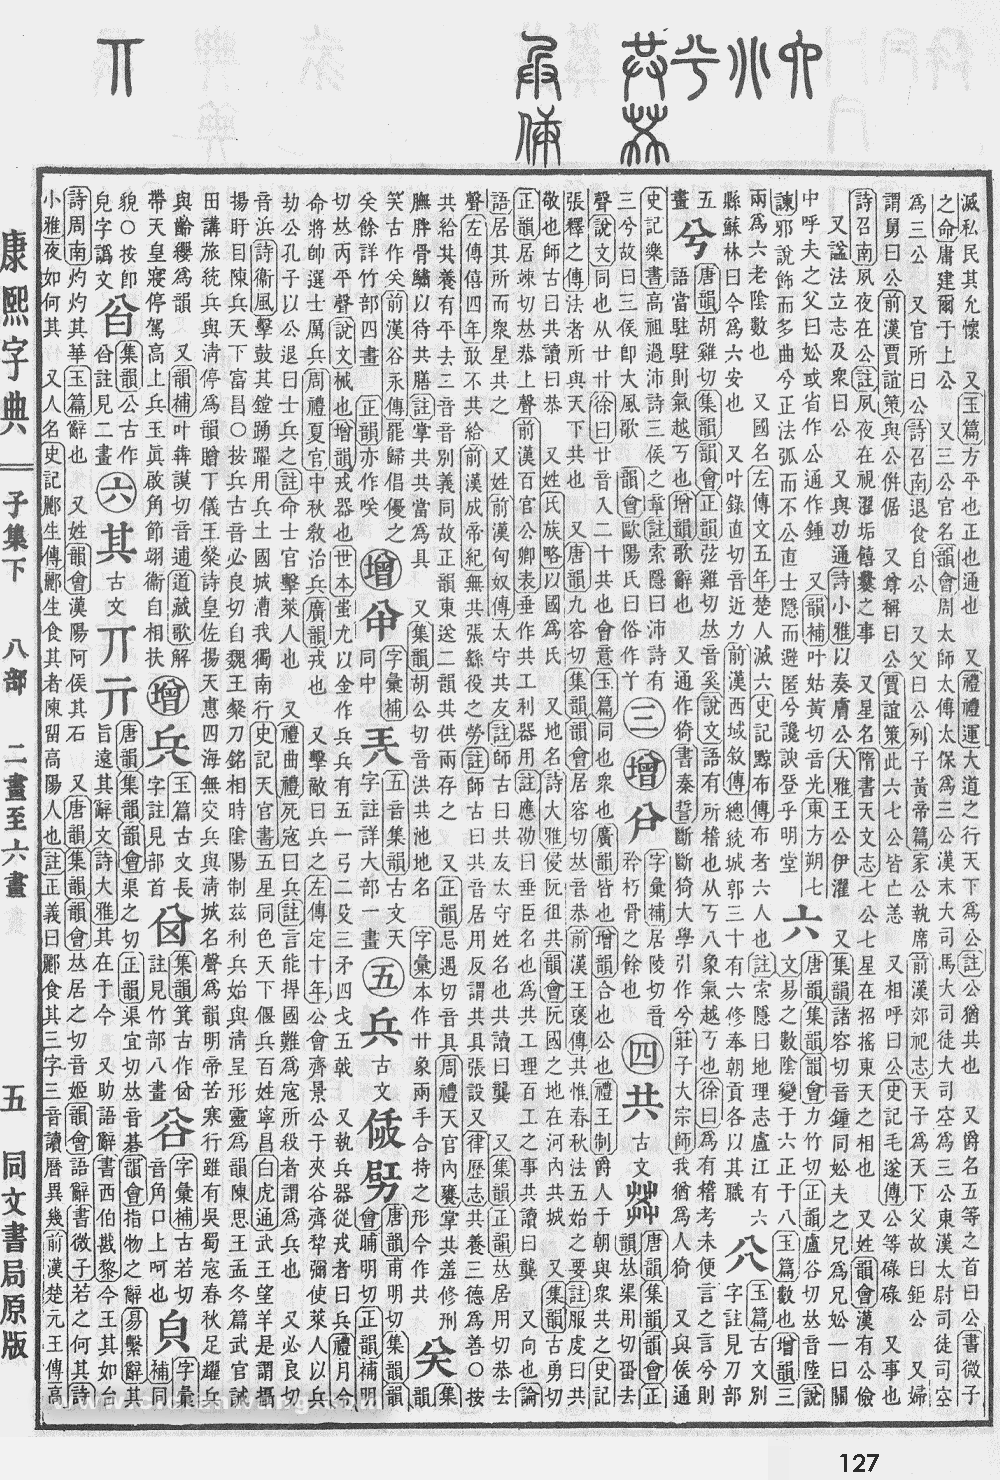 滅私民其允懷　又玉篇方平也正也通也　又禮禮運大道之行天下爲公註公猶共也　又爵名五等之首曰公書微子
之命庸建爾于上公　又三公官名韻會周太師太傅太保爲三公漢末大司馬大司徒大司空爲三公東漢太尉司徒司空
爲三公　又官所曰公詩召南退食自公　又父曰公列子黃帝篇家公執席前漢郊祀志天子爲天下父故曰鉅公　又婦
謂舅曰公前漢賈誼策與公倂倨　又尊稱曰公賈誼策此六七公皆亡恙　又相呼曰公史記毛遂傳公等碌碌　又事也
詩召南夙夜在公註夙夜在視濯垢饎爨之事　又星名隋書天文志七公七星在招搖東天之相也　又姓韻會漢有公儉
又諡法立志及衆曰公　又與功通詩小雅以奏膚公大雅王公伊濯　又集韻諸容切音鐘同妐夫之兄爲兄妐一曰關
中呼夫之父曰妐或省作公通作鍾　又韻補叶姑黃切音光東方朔七
諫邪說飾而多曲兮正法弧而不公直士隱而避匿兮讒諛登乎明堂
六　唐韻集韻韻會力竹切正韻盧谷切𠀤音陸說
文易之數陰變于六正于八玉篇數也增韻三
兩爲六老陰數也　又國名左傳文五年楚人滅六史記黥布傳布者六人也註索隱曰地理志盧江有六
縣蘇林曰今爲六安也　又叶錄直切音近力前漢西域敘傳總統城郭三十有六修奉朝貢各以其職
玉篇古文別
字註見刀部
五畫
兮　唐韻胡雞切集韻韻會正韻弦雞切𠀤音奚說文語有所稽也从丂八象氣越丂也徐曰爲有稽考未便言之言兮則
語當駐駐則氣越丂也增韻歌辭也　又通作猗書秦誓斷斷猗大學引作兮莊子大宗師我猶爲人猗　又與侯通
史記樂書高祖過沛詩三侯之章註索隱曰沛詩有
三兮故曰三侯卽大風歌　韻會歐陽氏曰俗作丫
三　增　字彙補居陵切音
矜朽骨之餘也
四　共　古文　唐韻集韻韻會正
韻𠀤渠用切蛩去
聲說文同也从廿廾徐曰廿音入二十共也會意玉篇同也衆也廣韻皆也增韻合也公也禮王制爵人于朝與衆共之史記
張釋之傳法者所與天下共也　又唐韻九容切集韻韻會居容切𠀤音恭前漢王褒傳共惟春秋法五始之要註服虔曰共
敬也師古曰共讀曰恭　又姓氏族略以國爲氏　又地名詩大雅侵阮徂共韻會阮國之地在河內共城　又集韻古勇切
正韻居竦切𠀤恭上聲前漢百官公卿表垂作共工利器用註應劭曰垂臣名也爲共工理百工之事共讀曰龔　又向也論
語居其所而衆星共之　又姓前漢匈奴傳太守共友註師古曰共友太守姓名也共讀曰龔　又集韻正韻𠀤居用切恭去
聲左傳僖四年敢不共給前漢成帝紀無共張繇役之勞註師古曰共音居用反謂共具張設又律歷志共養三德爲善○按
共給共養有平去二音音別義同故正韻東送二韻共供兩存之　又正韻忌遇切音具周禮天官內饔掌共羞修刑
膴胖骨鱐以待共膳註掌共共當爲具　又集韻胡公切音洪共池地名　字彙本作廾象兩手合持之形今作共
关　集韻
笑古作关前漢谷永傳罷歸倡優之
关餘詳竹部四畫　正韻亦作咲
增　字彙補
同中
五音集韻古文天
字註詳大部一畫
五　兵　古文　唐韻甫明切集韻韻
會晡明切正韻補明
切𠀤丙平聲說文械也增韻戎器也世本蚩尤以金作兵兵有五一弓二殳三矛四戈五戟　又執兵器從戎者曰兵禮月令
命將帥選士厲兵周禮夏官中秋敎治兵廣韻戎也　又擊敵曰兵左傳定十年公會齊景公于夾谷齊犂彌使萊人以兵
劫公孔子以公退曰士兵之註命士官擊萊人也　又禮曲禮死寇曰兵註言能捍國難爲寇所殺者謂爲兵也　又必良切
音浜詩衞風擊鼓其鏜踴躍用兵土國城漕我獨南行史記天官書五星同色天下偃兵百姓寧昌白虎通武王望羊是謂攝
揚盱目陳兵天下富昌○按兵古音必良切自魏王粲刀銘相時陰陽制兹利兵始與淸呈形靈爲韻陳思王孟冬篇武官誡
田講旅統兵與淸停爲韻贈丁儀王粲詩皇佐揚天惠四海無交兵與淸城名聲爲韻明帝苦寒行雖有吳蜀寇春秋足耀兵
與齡纓爲韻　又韻補叶犇謨切音逋道藏歌解
帶天皇寢停駕高上兵玉眞啟角節翊衞自相扶
增　玉篇古文長
字註見部首
集韻箕古作
註見竹部八畫
谷　字彙補古若切
音角口上呵也
字彙
補同
貌○按卽
兒字譌文
集韻公古作
註見二畫
六　其　古文　丌　亓　唐韻集韻韻會渠之切正韻渠宜切𠀤音碁韻會指物之辭易繫辭其
旨遠其辭文詩大雅其在于今　又助語辭書西伯戡黎今王其如台
詩周南灼灼其華玉篇辭也　又姓韻會漢陽阿侯其石　又唐韻集韻韻會𠀤居之切音姬韻會語辭書微子若之何其詩
小雅夜如何其　又人名史記酈生傳酈生食其者陳留高陽人也註正義曰酈食其三字三音讀曆異幾前漢楚元王傳高
康熙字典　子集下　八部　二畫至六畫　五　同文書局原版
127